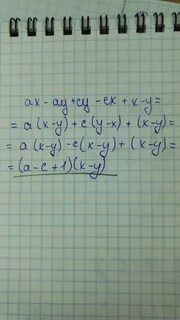 ax - ay + cy - cx + x - y =
= a(x-y) + c(y-x) + (x-y) =
= a(x-y) - c(x-y) + (x-y) =
= (a-c+1)(x-y)